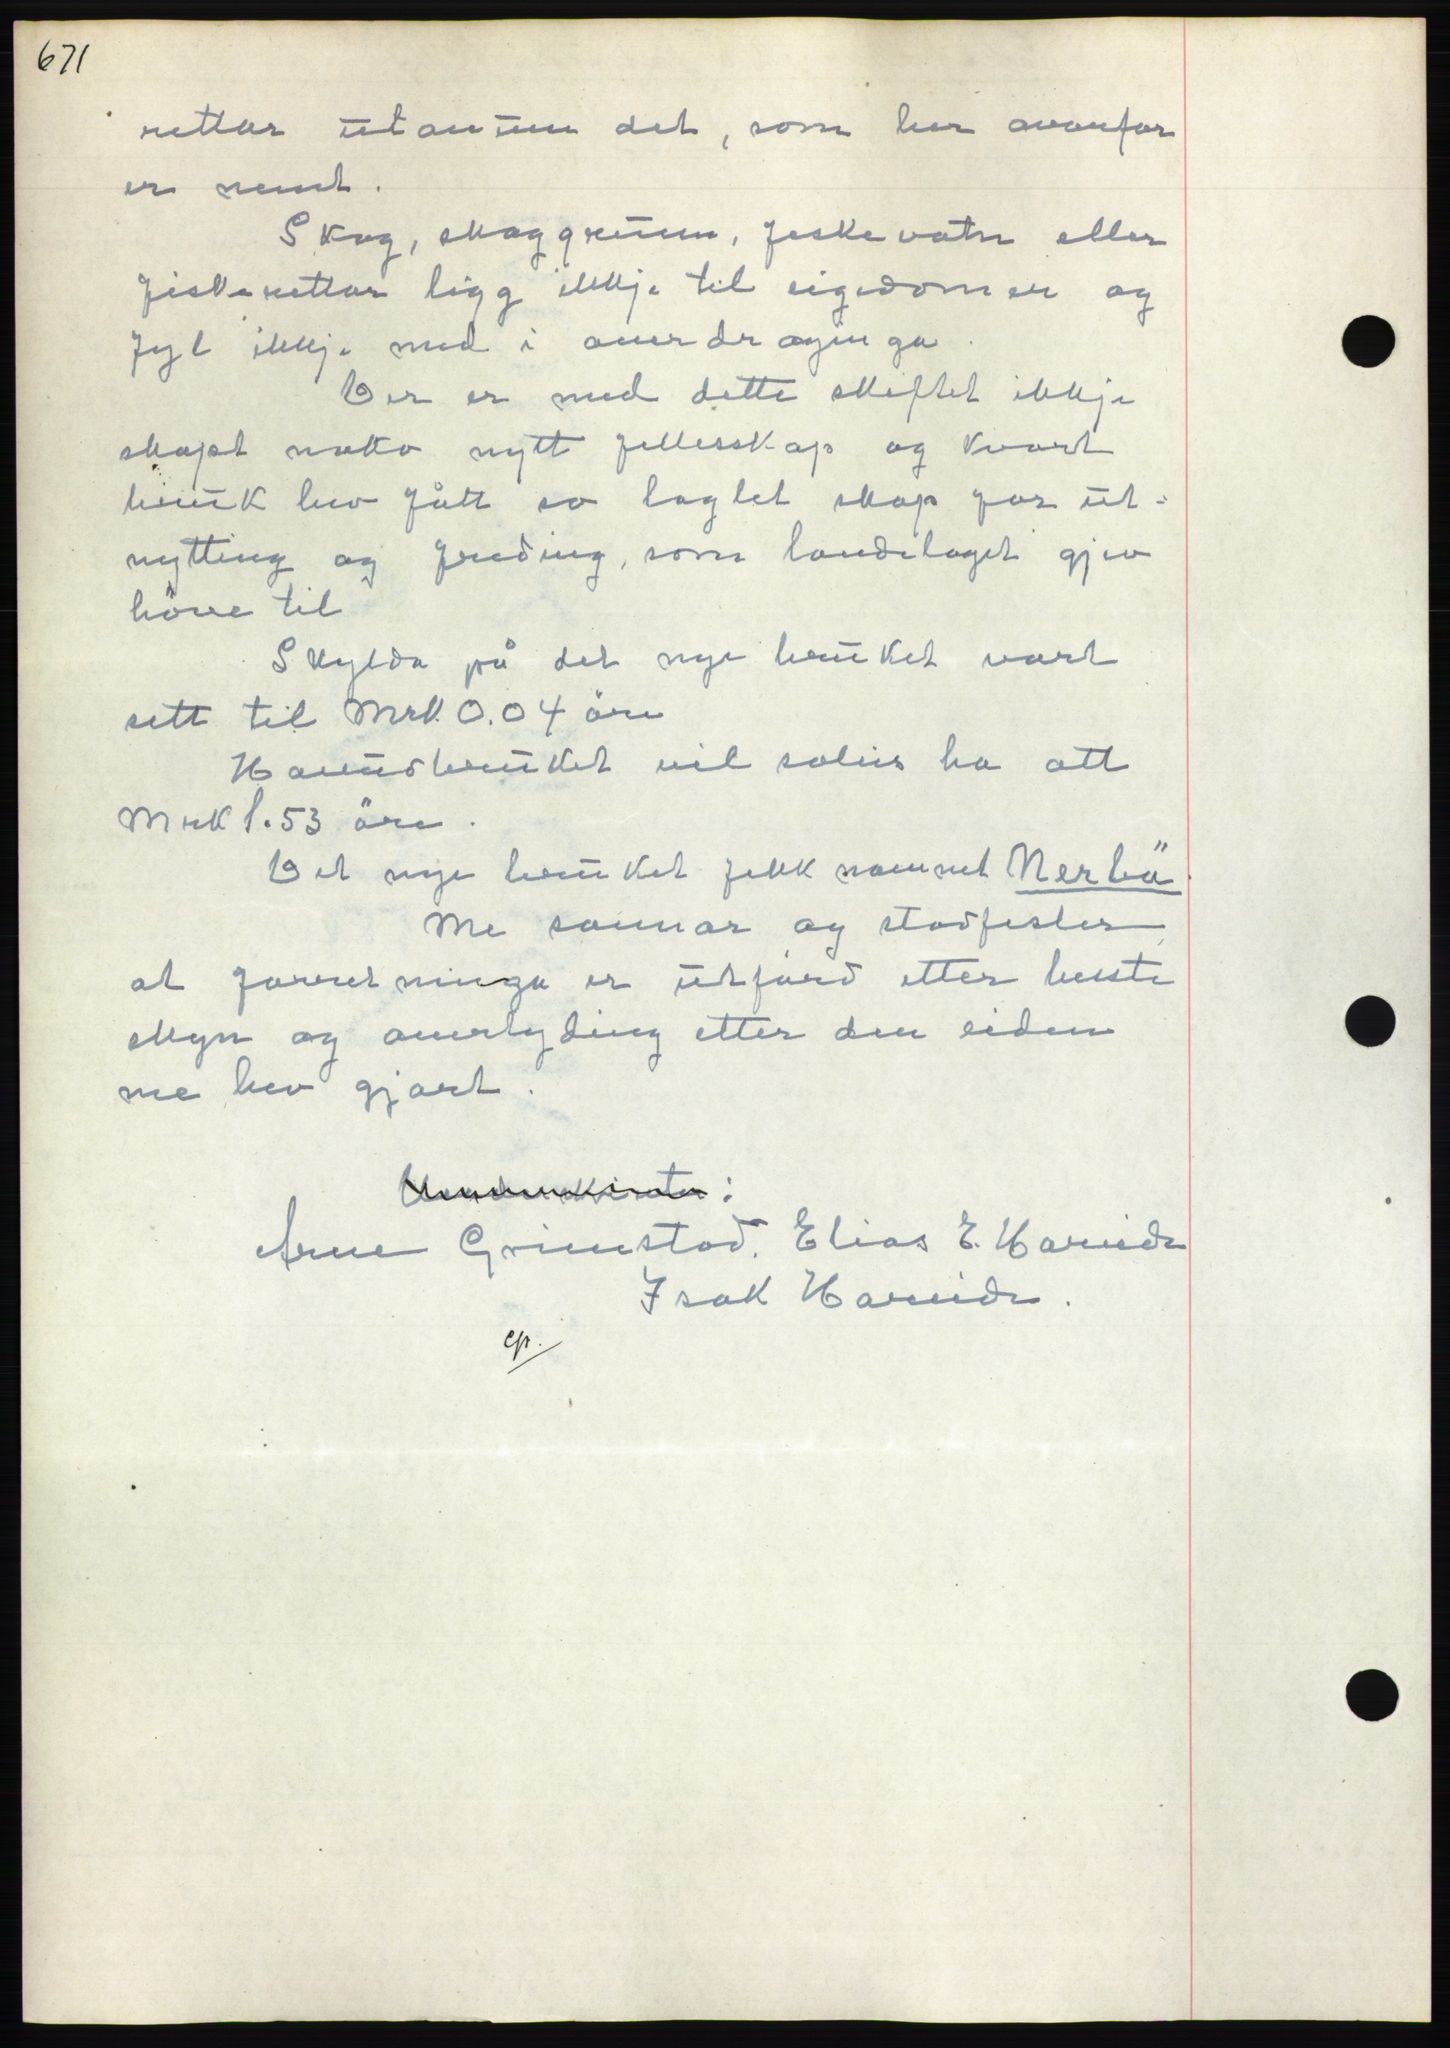 671
rettar utanum det, som her ovanfor
er nemt.
Skog, skoggrunn, fiskevatn eller
fiskerettar ligg ikkje til eigedomen og
fyl ikkje med i overdraginga.
Der er med dette skiftet ikkje
skapt noko nytt fellesskap og kvart
bruk hev fått so lagleg skap for ut-
nytting og freding, som landslaget gjev
høve til
Skylda på det nye bruket vart
sett til Mrk. 0.04 öre
Hovudbruket vil soleis ha att
Mrk 1.53 öre.
Det nye bruket fekk namnet Nerbö
Me sannar og stadfester
at forretninga er utförd etter beste
skyn og overtyding etter den eiden
me hev gjort.
:
Arne Grimstad. Elias E. Hareide
Isak Hareide.
ep.